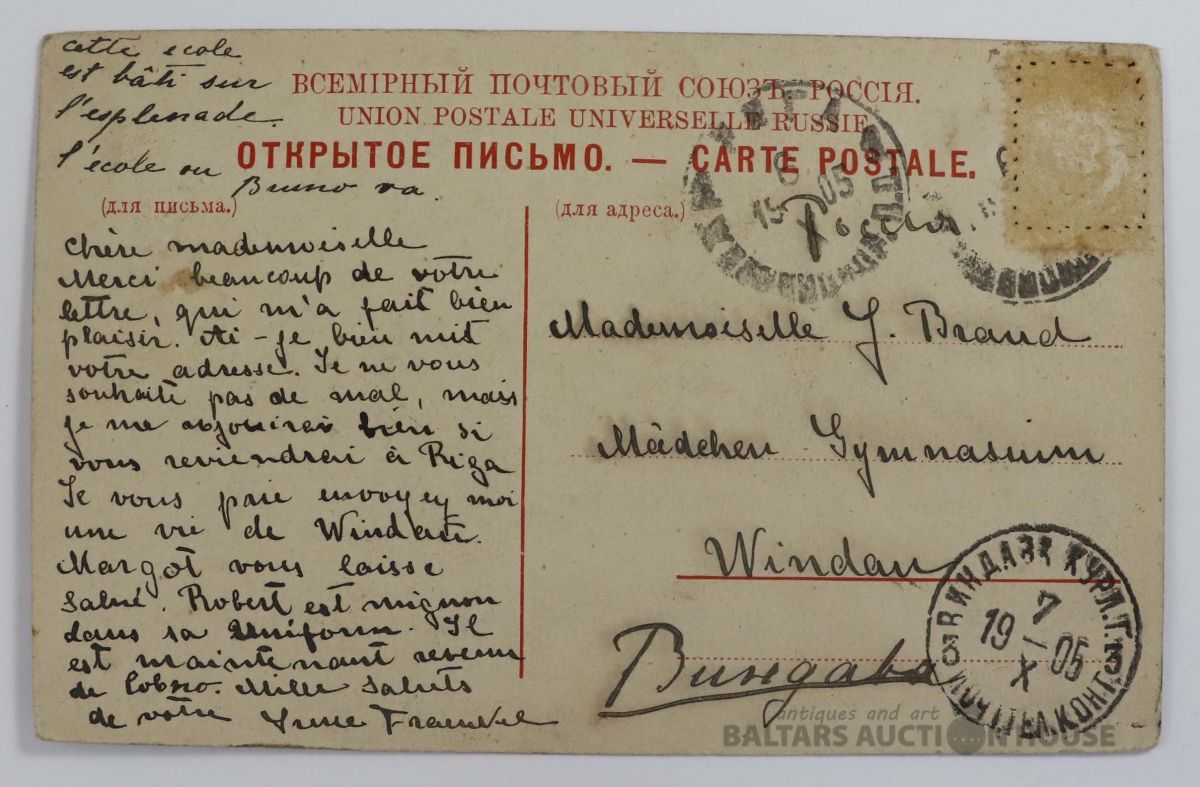 cette ecole
est bâti sur
l'esplenade.
l'école ou
Bruno va
ВСЕМІРНЫЙ ПОЧТОВЫЙ СОЮЗЪ. РОССІЯ.
UNION POSTALE UNIVERSELLE RUSSIE
ОТКРЫТОЕ ПИСЬМО. — CARTE POSTALE.
(для письма.)
(для адреса.)
chère mademoiselle
Merci beaucoup de votre
lettre, qui m'a fait bien
plaisir. Ai-je bien mit
votre adresse. Je ne vous
souhaite pas de mal, mais
je me rejouirai bien si
vous reviendrai à Riga
Je vous prie envoyez moi
une vie de Windau.
Margot vous laisse
salué. Robert est mignon
dans sa Uniform. Il
est maintenant revenu
de. Mille saluts
de votre Irene Fraenkel
РИГА
6
19 05
X
Mademoiselle J. Brand
Mädchen Gymnasium
Windau
Виндава
ВИНДАВА КУРЛ.Г.
7
19 05
X
ПОЧТ.ТЕЛ.КОНТ.
3 3
antiques and art
BALTARS AUCTION HOUSE